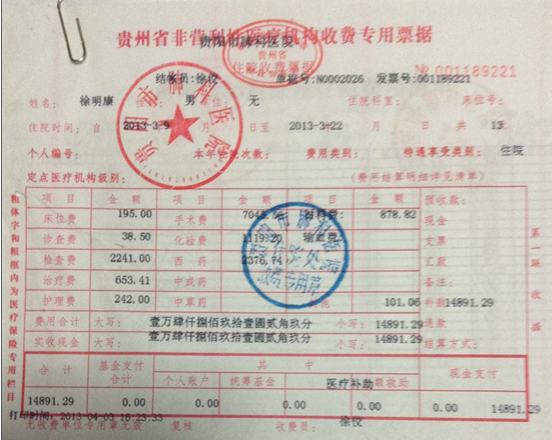 贵州省非营利性医疗机构收费专用票据
贵阳市肺科医院
贵州省
住院收费票据
№ 001189221
结帐员:徐仪 单据号:N0002026 发票号:001189221
姓名: 徐明康 男 单位: 无 住院科室: 床位号:
住院时间: 自 2013-3-9 月 日至 2013-3-22 月 日 共 13
个人编号: 本年住院次数: 费用类别: 待遇享受类别: 住院
定点医疗机构级别: (费用结算明细详见清单)
项目 金额 项目 金额 项目 金额 预收款:
床位费 195.00 手术费 878.82 现金
诊查费 38.50 化验费 1119.20 输血费 支票
检查费 2241.00 西药 2376.74 汇款
治疗费 653.41 中成药 备注:
护理费 242.00 中草药 101.06 补款 14891.29
费用合计 大写: 壹万肆仟捌佰玖拾壹圆贰角玖分 小写: 14891.29 退款
实收现金 大写: 壹万肆仟捌佰玖拾壹圆贰角玖分 小写: 14891.29 结算方式:
合计 基金支付合计 其中 现金支付
个人账户 统筹基金 医疗补助 额救助
14891.29 0.00 0.00 0.00 0.00 0.00 14891.29
打印时间: 2013-04-03 16:23:33
无收费单位专用章无效 复核 收费员: 徐仪
粗体字和粗框内为医疗保险专用栏目
第一联
收费专用章